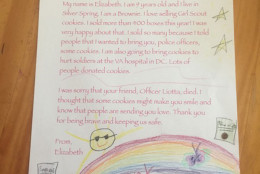 My name is Elizabeth. I am 8 years old and I live in
Silver Spring. I am a Brownie. I love selling Girl Scout
cookies. I sold more than 900 boxes this year! I was
very happy about that. I sold so many because I told
people that I wanted to bring you, police officers,
some cookies. I am also going to bring cookies to
hurt soldiers at the VA hospital in DC. Lots of
people donated cookies.
I was sorry that your friend, Officer Liotta, died. I
thought that some cookies might make you smile and
know that people are sending you love. Thank you
for being brave and keeping us safe.
From,
Elizabeth